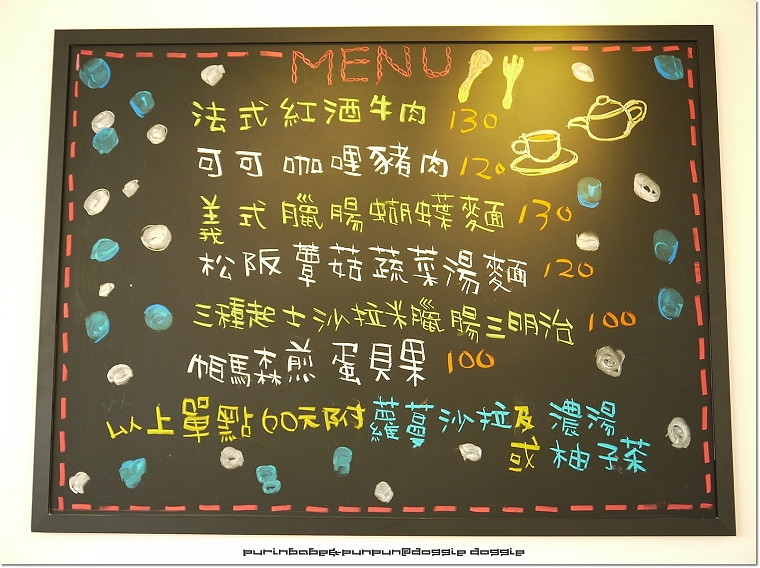 MENU
法式紅酒牛肉 130
可可咖哩豬肉 120
義式臘腸蝴蝶麵 130
松阪蕈菇蔬菜湯麵 120
三種起士沙拉米臘腸三明治 100
帕馬森煎蛋貝果 100
以上單點60元附蘿蔔沙拉及濃湯
或柚子茶
purinbabe&punpun@doggie doggie